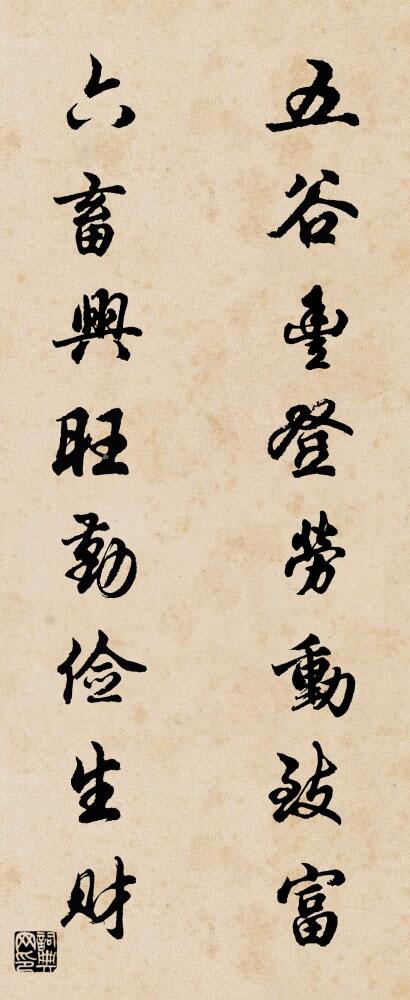 五谷豊登勞動致富
六畜興旺勤俭生财
詞典网印